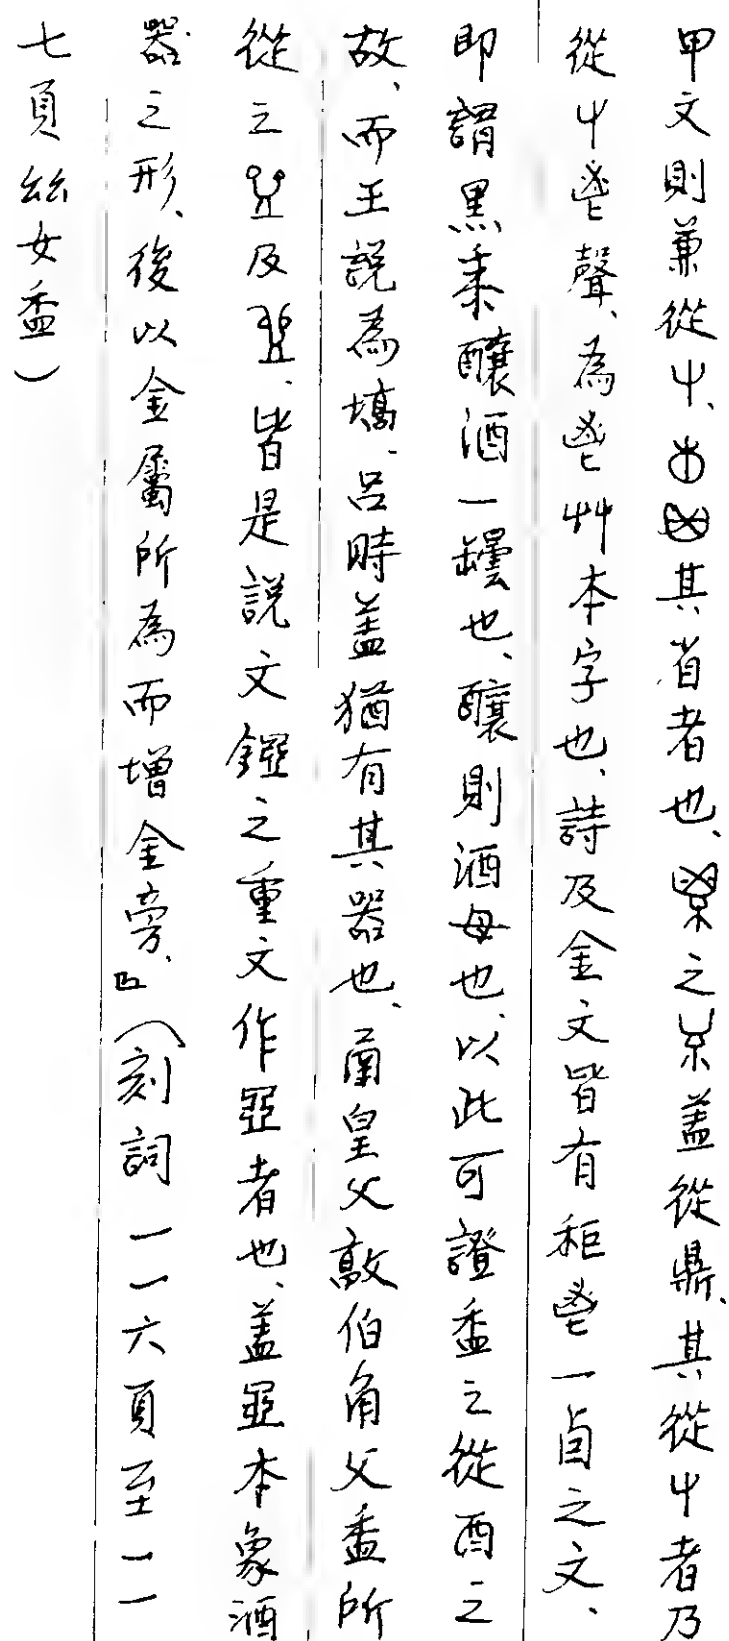 甲文則兼從屮、其省者也、之蓋從鼎、其從屮者乃
從屮鬯聲、為鬯艸本字也、詩及金文皆有秬鬯一卣之文、
即謂黑黍釀酒一罎也、釀則酒母也、以此可證盉之從酉之
故、而王說為壔、呂時蓋猶有其器也、圅皇父敦伯角父盉所
從之及、皆是說文鐙之重文作者也、蓋本象酒
器之形、後以金屬所為而增金旁、』（刻詞一一六頁至一一
七頁絲女盉）